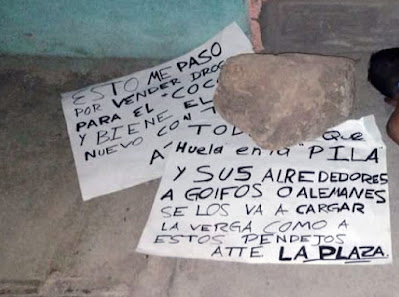 ESTO ME PASO
POR VENDER DROG
PARA EL "COC
Y BIENE EL
NUEVO CON T
TOD QUE
A´Huela en la "PILA"
Y SUS ALREDEDORES
A GOIFOS O ALEMANES
SE LOS VA A CARGAR
LA VERGA COMO A
ESTOS PENDEJOS
ATTE LA PLAZA.